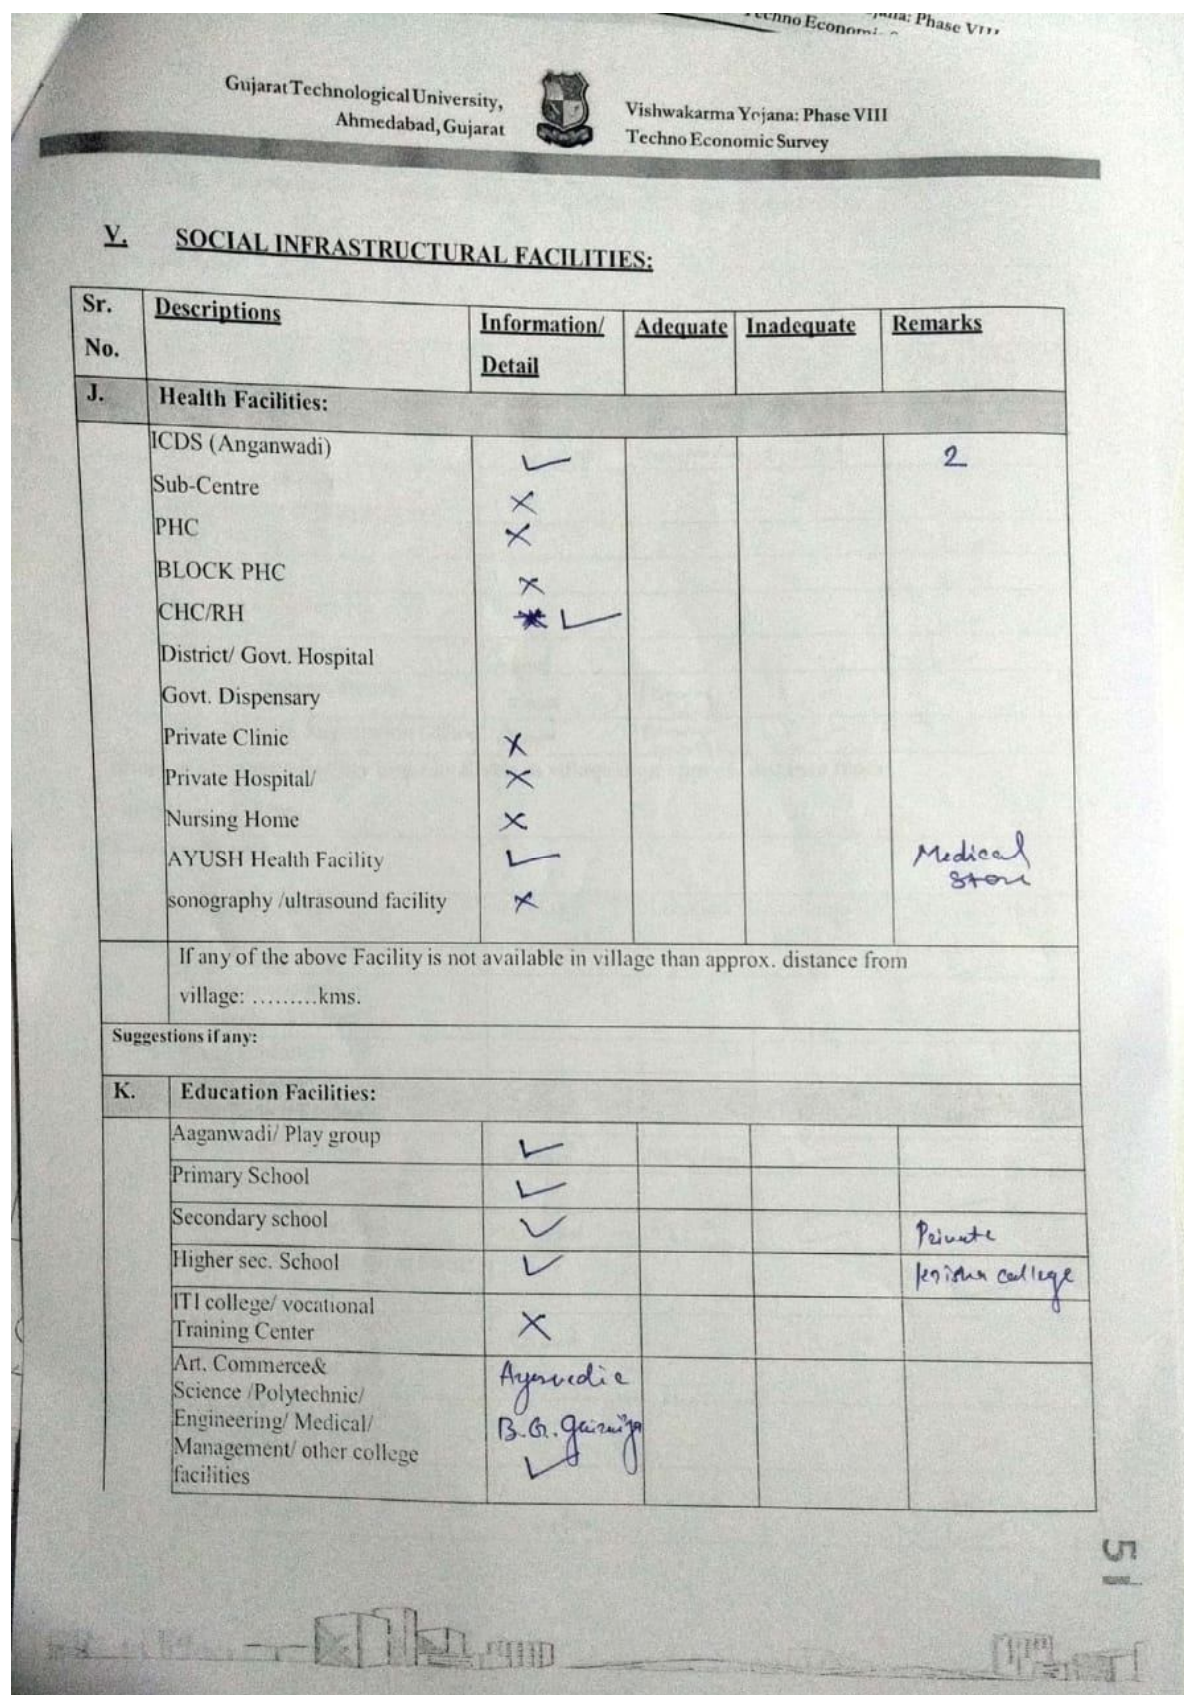 Techno Economic
Phase VIII
Gujarat Technological University,
Ahmedabad, Gujarat
Vishwakarma Yojana: Phase VIII
Techno Economic Survey
V. SOCIAL INFRASTRUCTURAL FACILITIES:
Sr. No. Descriptions Information/ Detail Adequate Inadequate Remarks
J. Health Facilities:
ICDS (Anganwadi) ✓ 2
Sub-Centre ✗
PHC ✗
BLOCK PHC ✗
CHC/RH ✓
District/ Govt. Hospital
Govt. Dispensary
Private Clinic ✗
Private Hospital/ ✗
Nursing Home ✗
AYUSH Health Facility ✓ Medical
Store
sonography /ultrasound facility ✗
If any of the above Facility is not available in village than approx. distance from
village: .........kms.
Suggestions if any:
K. Education Facilities:
Aaganwadi/ Play group ✓
Primary School ✓
Secondary school ✓ Private
Higher sec. School ✓ college
ITI college/ vocational
Training Center ✗
Art. Commerce&
Science /Polytechnic/
Engineering/ Medical/
Management/ other college
facilities
Ayurvedic
B.G. ✓
51